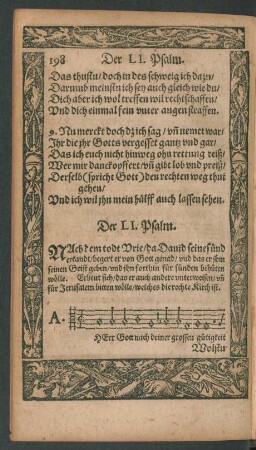 198 Der LI. Psalm.
Das thustu/ doch in des schweig ich dazu/
Darumb meinstu ich sey auch gleich wie du/
Dich aber ich wol treffen wil rechtschaffen/
Vnd dich einmal fein vnter augen straffen.
9. Nu merckt doch dz ich sag/ vñ nemet war/
Ihr die jhr Gotts vergesset gantz vnd gar/
Das ich euch nicht hinweg ohn rettung reiß/
Wer mir danckopffert/ vñ gibt lob vnd preiß/
Derselb (spricht Gott) den rechten weg thut
gehen/
Vnd ich wil jhn mein hälff auch lassen sehen.
Der LI. Psalm.
NAch dem tode Vrie/ da Dauid seine sünd
erkandt/ begert er von Gott genad/ vnd das er jhm
seinen Geist geben/ vnd jhn forthin für sünden behüten
wölle. Erbiet sich/ das er auch andere vnterweisen/ vñ
für Jerusalem bitten wölle/ welches die rechte Kirch ist.
A.
HErr Gott nach deiner grossen gütigkeit
Wolstu